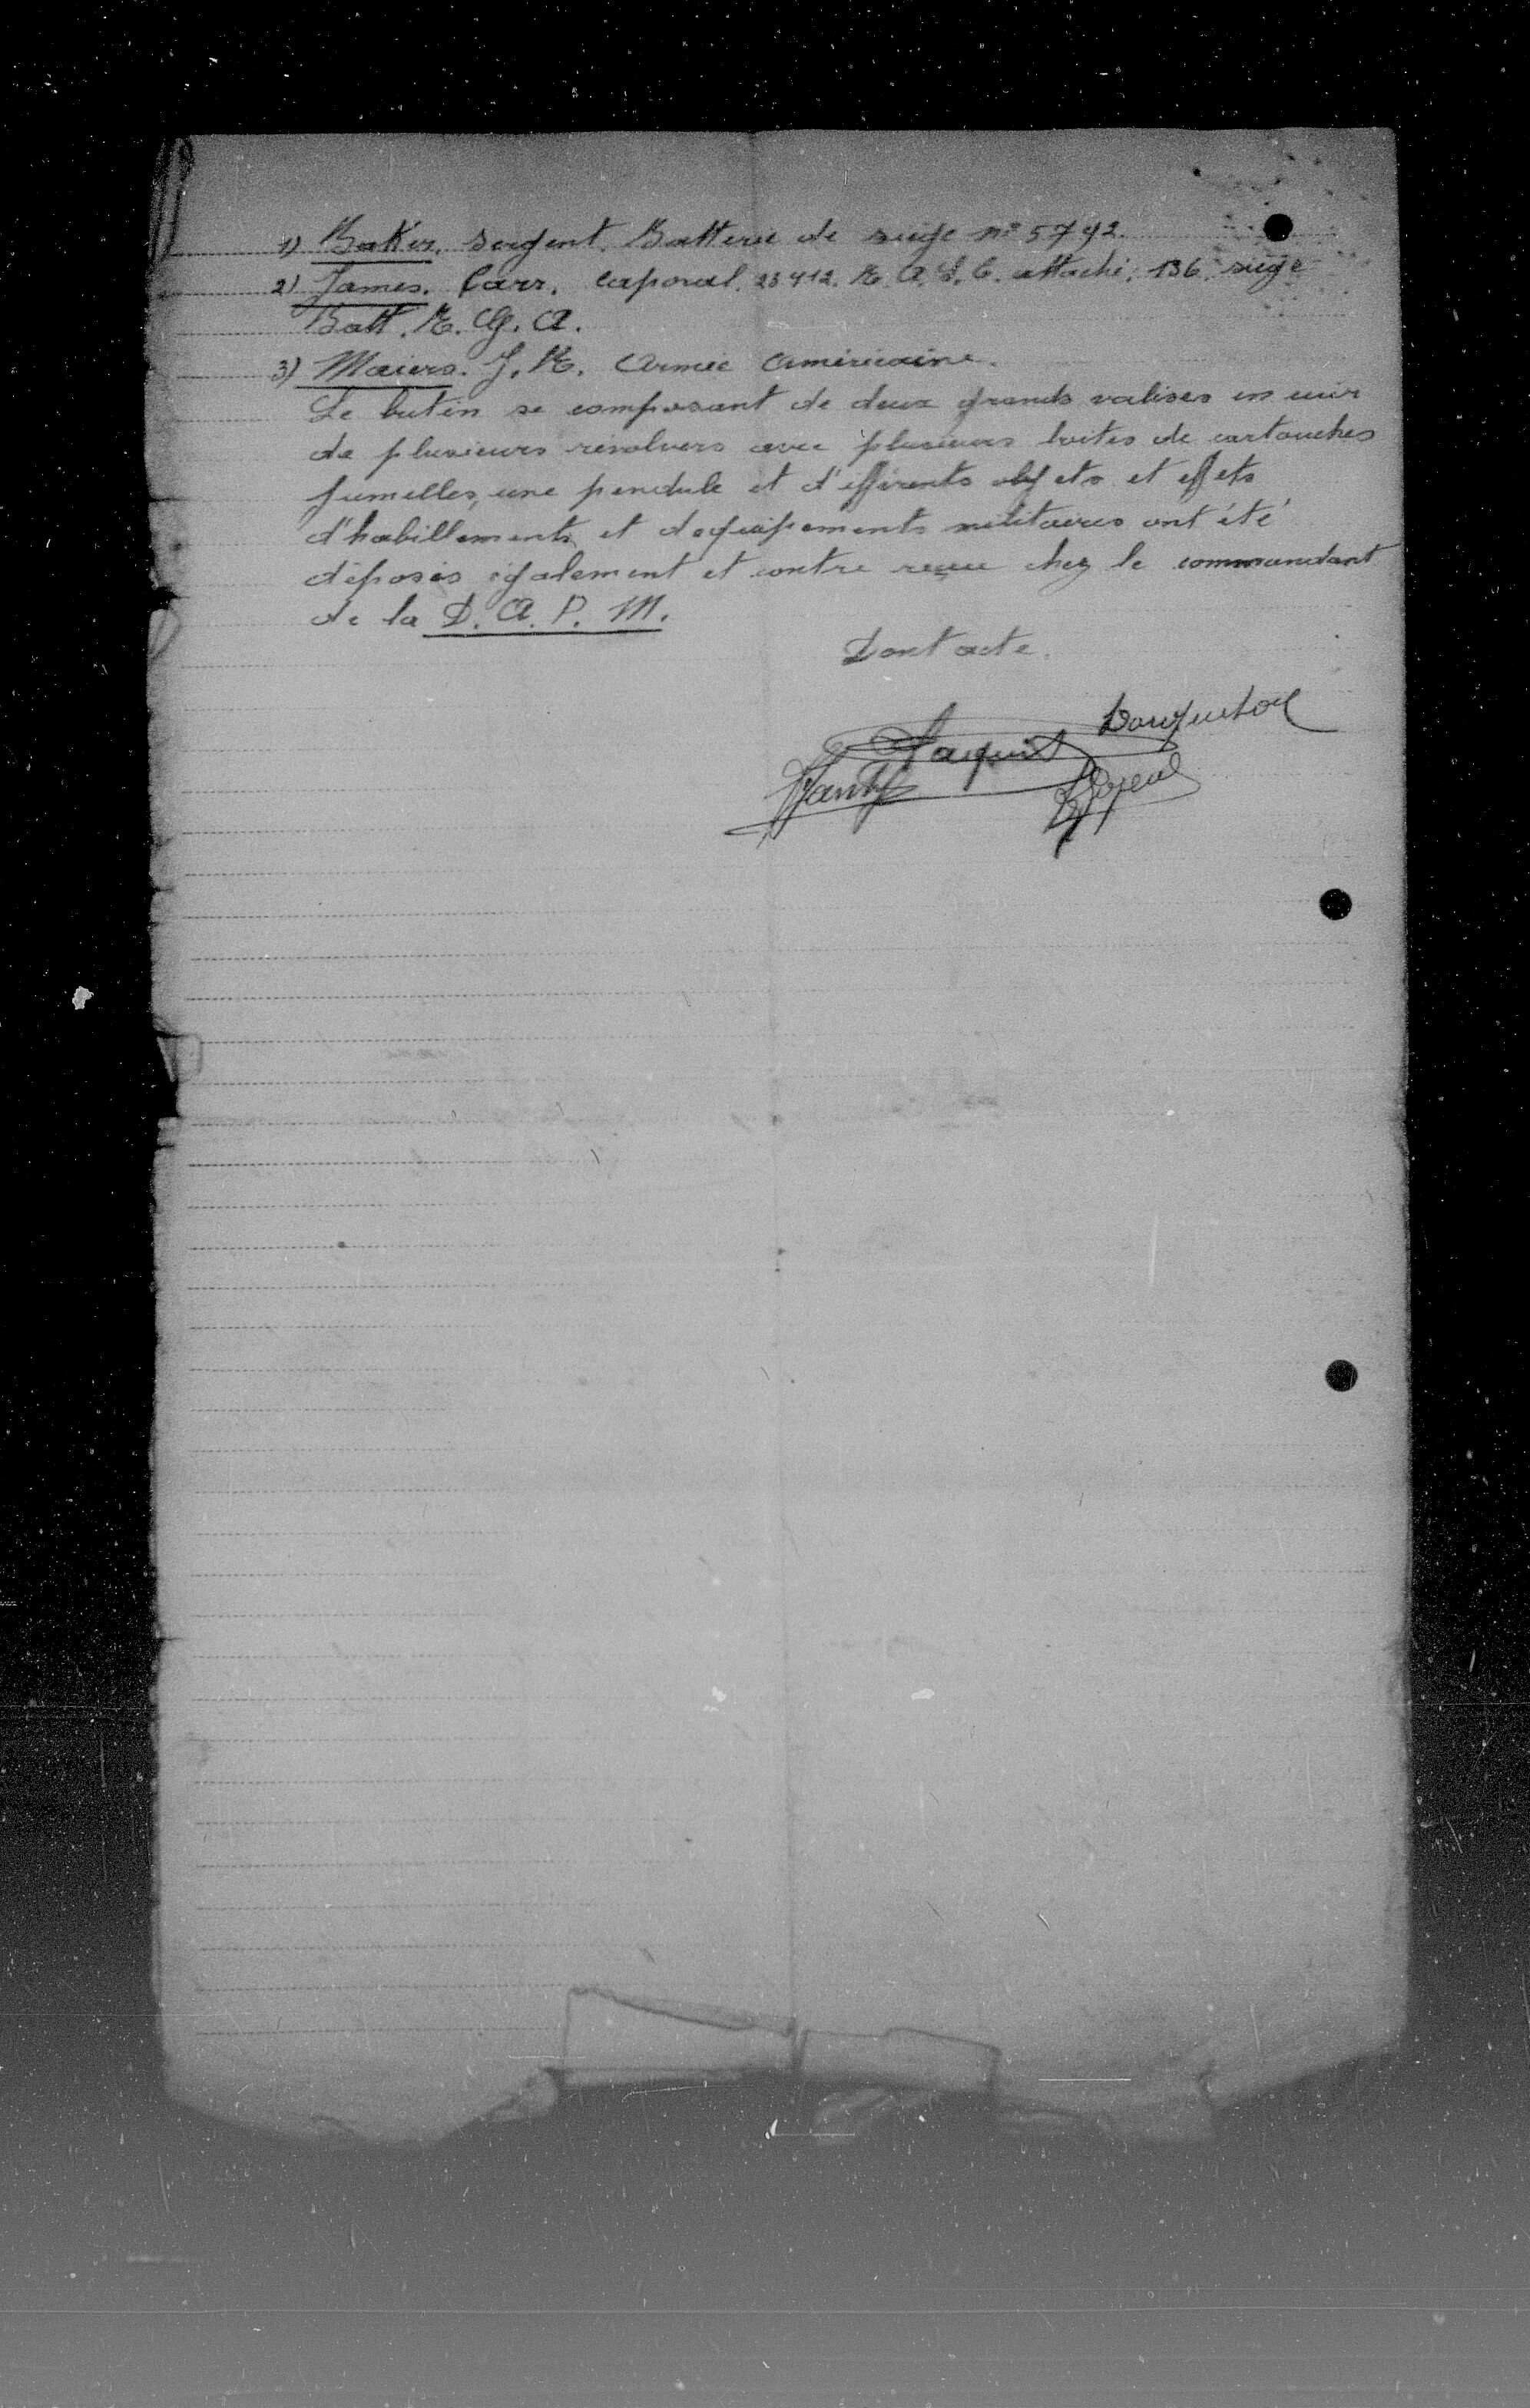 1) Baker, Sergent. Batterie de siège nº 5792.
2) James. Carr. Caporal. 23412. R. A. S. C. attaché. 136 siège
Batt. R. G. A.
3) Maiers. J. R. Armée Américaine.
Le butin se composant de deux grands valises en cuir
de plusieurs révolvers avec plusieurs boites de cartouches
jumelles, une pendule et d'efférents objets et effets
d'habillements et dequipements militaires ont été
déposés également et contre reçue chez le commandant
de la D. A. P. M.
Dont acte.
Jaquet